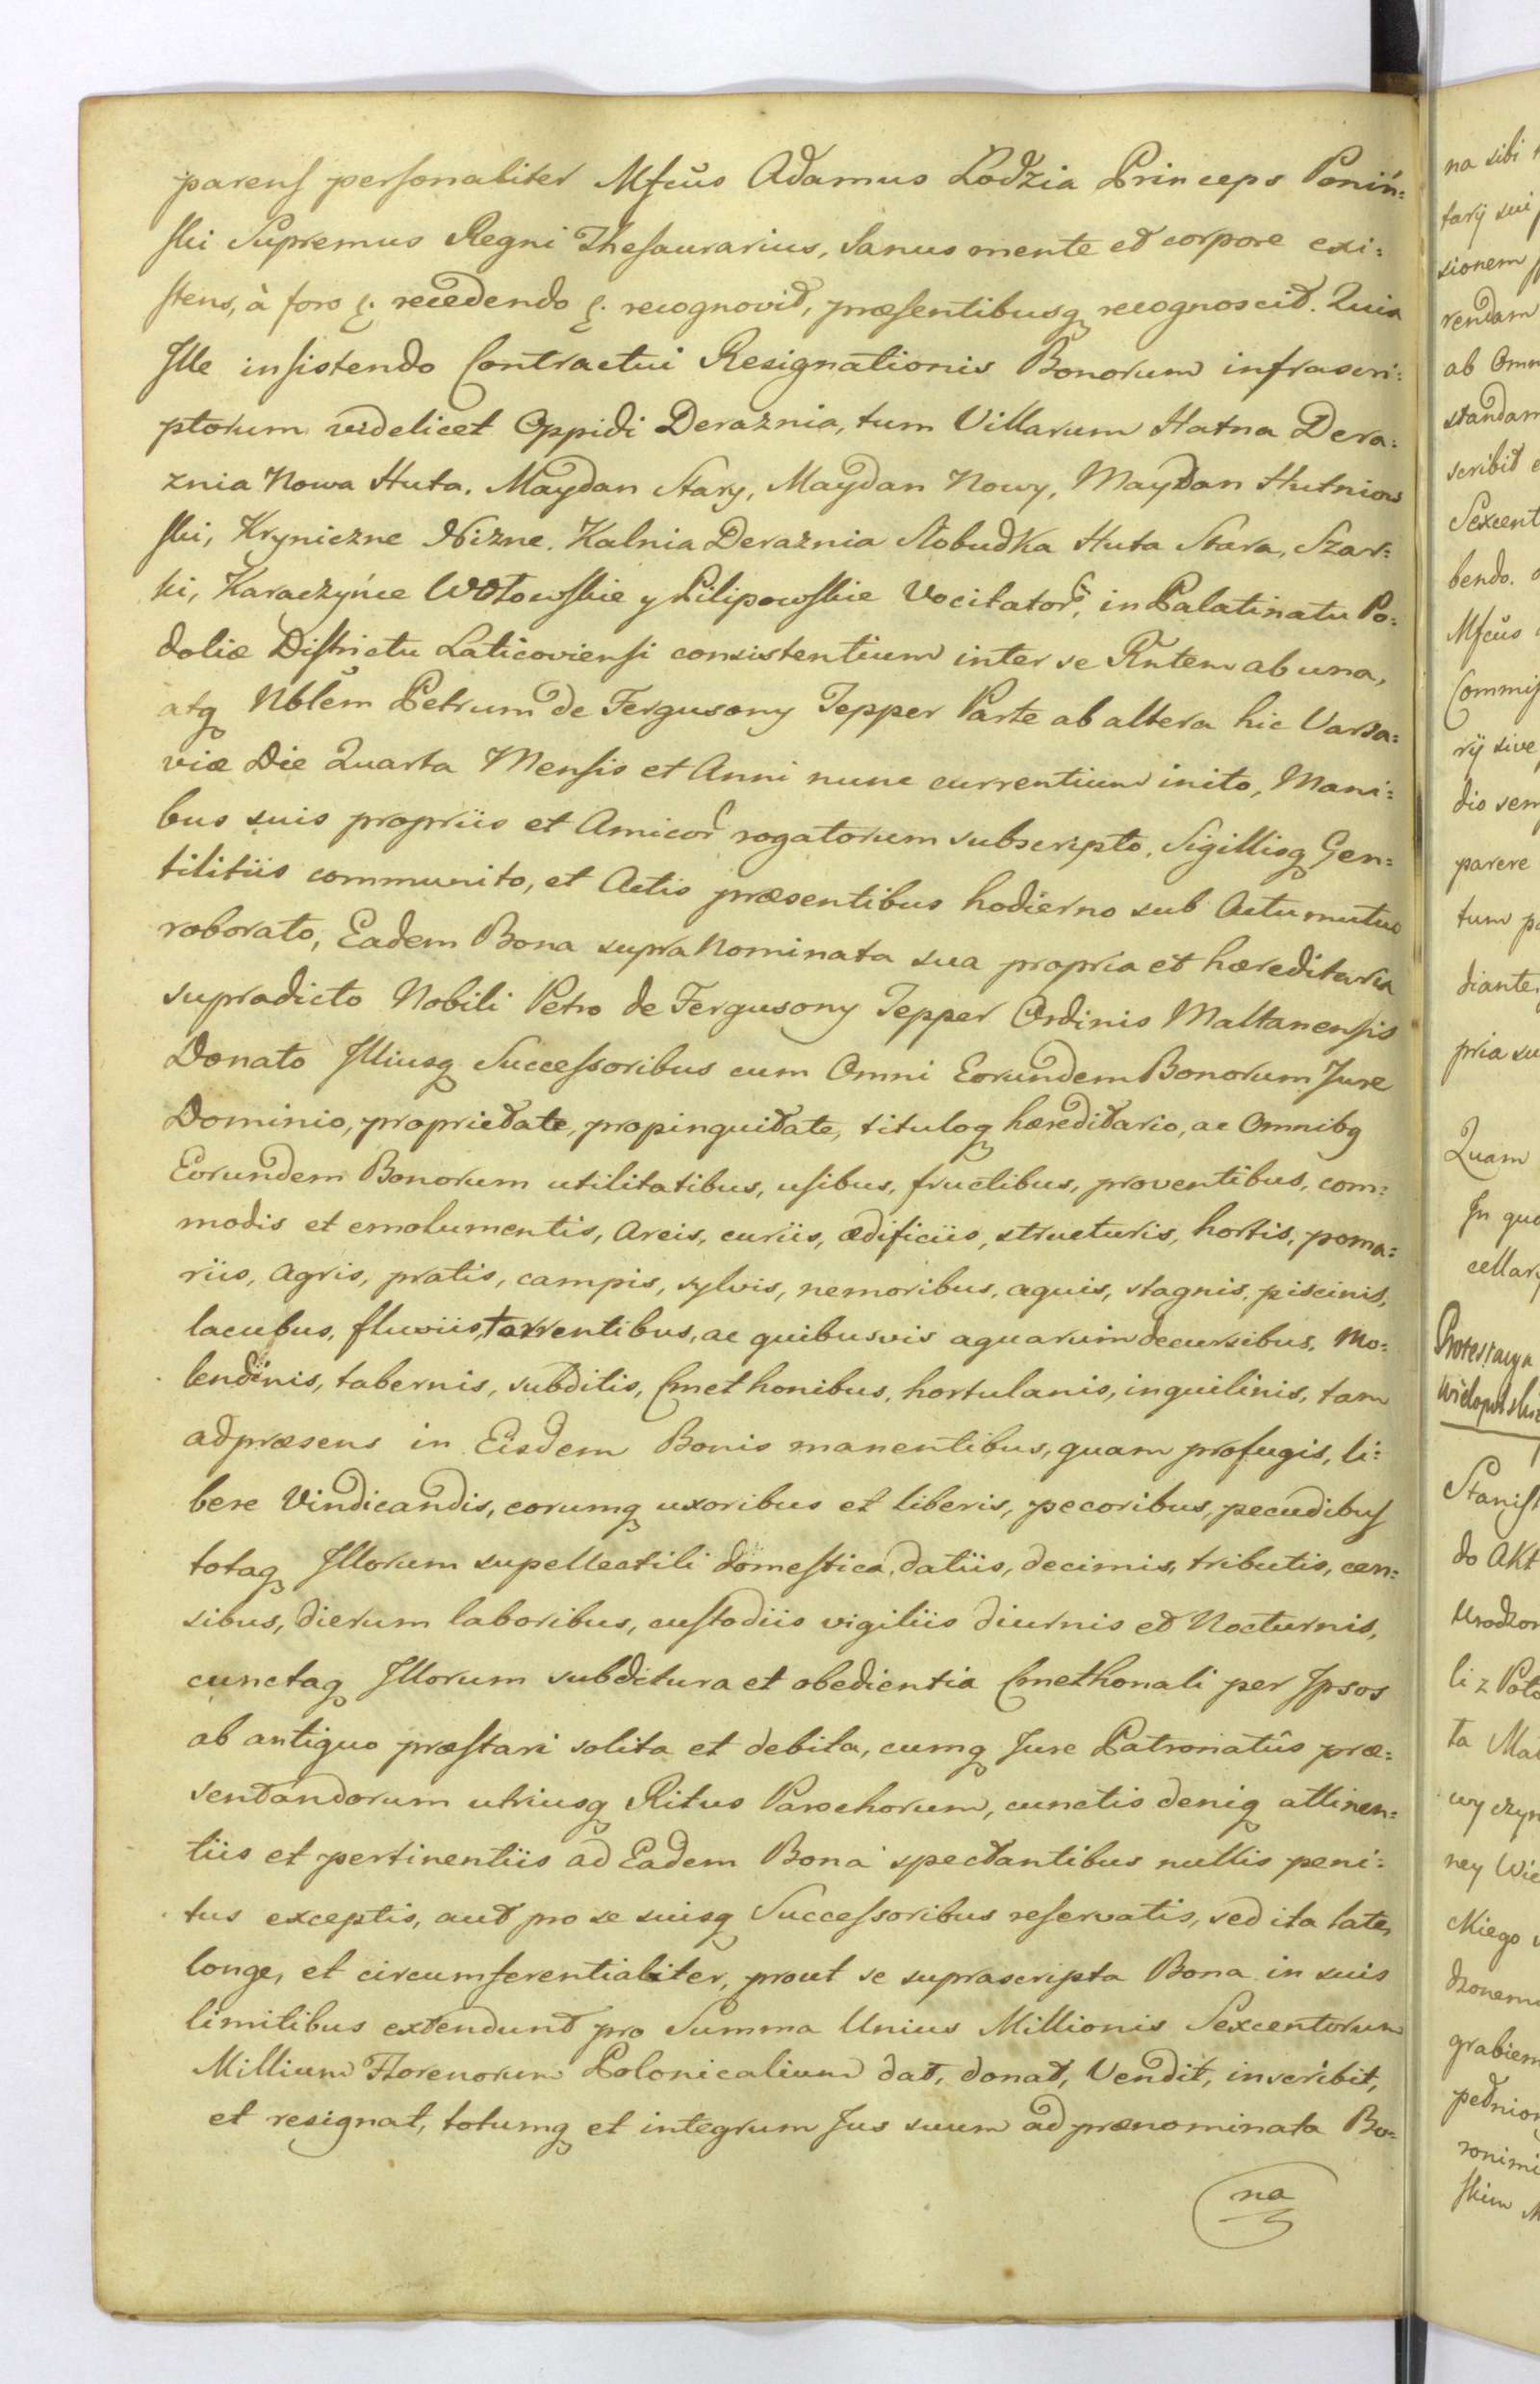 parens personaliter Mfcus Adamus Łodzia Princeps Poniń=
ski Supremus Regni Thesaurarius, Sanus mente et corpore exi=
stens, à foro &. recedendo &. recognovit, præsentibusq recognoscit. Quia
Ille insistendo Contractui Resignationis Bonorum infrascri=
ptorum videlicet Oppidi Deraznia, tum Villarum Hatna Dera=
znia Nowa Huta. Maydan Stary, Maydan Nowy, Maydan Hutniow
ski, Kryniczne Nizne. Kalnia Deraznia Słobudka Huta Stara, Szar=
ki, Karaczyńce Wołowskie y Pilipowskie Vocitator, in Palatinatu Po=
doliæ Districtu Laticoviensi consistentium inter se Rntem ab una,
atq Nblem Petrum de Fergusony Tepper Parte ab altera hic Varsa=
viæ Die Quarta Mensis et Anni nunc currentium inito, Mani=
bus suis propriis et Amicor rogatorum subscripto, Sigillisq Gen=
tilitiis communito, et Actis præsentibus hodierno sub Actu mutuo
roborato, Eadem Bona supra Nominata sua propria et hæreditaria
supradicto Nobili Petro de Fergusony Tepper Ordinis Maltanensis
Donato Illiusq Successoribus cum Omni Eorundem Bonorum Jure
Dominio, proprietate, propinquitate, tituloq hæreditario, ac Omnibq
Eorundem Bonorum utilitatibus, usibus, fructibus, proventibus, com=
modis et emolumentis, Areis, curiis, ædificiis, structuris, hortis, poma=
riis, Agris, pratis, campis, sylvis, nemoribus, aquis, stagnis, piscinis,
lacubus, fluviis, torrentibus, ac quibusvis aquarum decursibus, Mo=
lendinis, tabernis, subditis, Cmethonibus, hortulanis, inquilinis, tam
ad præsens in Eisdem Bonis manentibus, quam profugis, li=
bere Vindicandis, eorumq uxoribus et liberis, pecoribus, pecudibus
totaq Illorum supellectili domestica, datiis, decimis, tributis, cen=
sibus, dierum laboribus, custodiis vigiliis diurnis et Nocturnis,
cunctaq Illorum subditura et obedientia Cmethonali per Ipsos
ab antiquo præstari solita et debita, cumq Jure Patronatûs præ=
sentandorum utriusq Ritus Parochorum, cunctis deniq attinen=
tiis et pertinentiis ad Eadem Bona spectantibus nullis peni=
tus exceptis, aut pro se suisq Successoribus reservatis, sed ita late,
longe, et circumferentialiter, prout se suprascripta Bona in suis
limitibus extendunt pro Summa Unius Millionis Sexcentorum
Millium Florenorum Polonicalium dat, donat, Vendit, inscribit,
et resignat, totumq et integrum Jus suum ad prænominata Bo=
na
na sibi
tarij sui
sionem
rendam
ab Omn
standam
scribit
Sexcent
bendo.
Mfcus
Commis
rij sive
dio sem
parere
tum
diante
pria su
Quam
In quo
cellar
Protestacya
Wielopolskie
Stanisł
do Akt
Urodzon
li z Poto
ta Ma
wy czyn
ney Wie
ckiego
dzonem
grabiem
pełnion
ronimi
skim